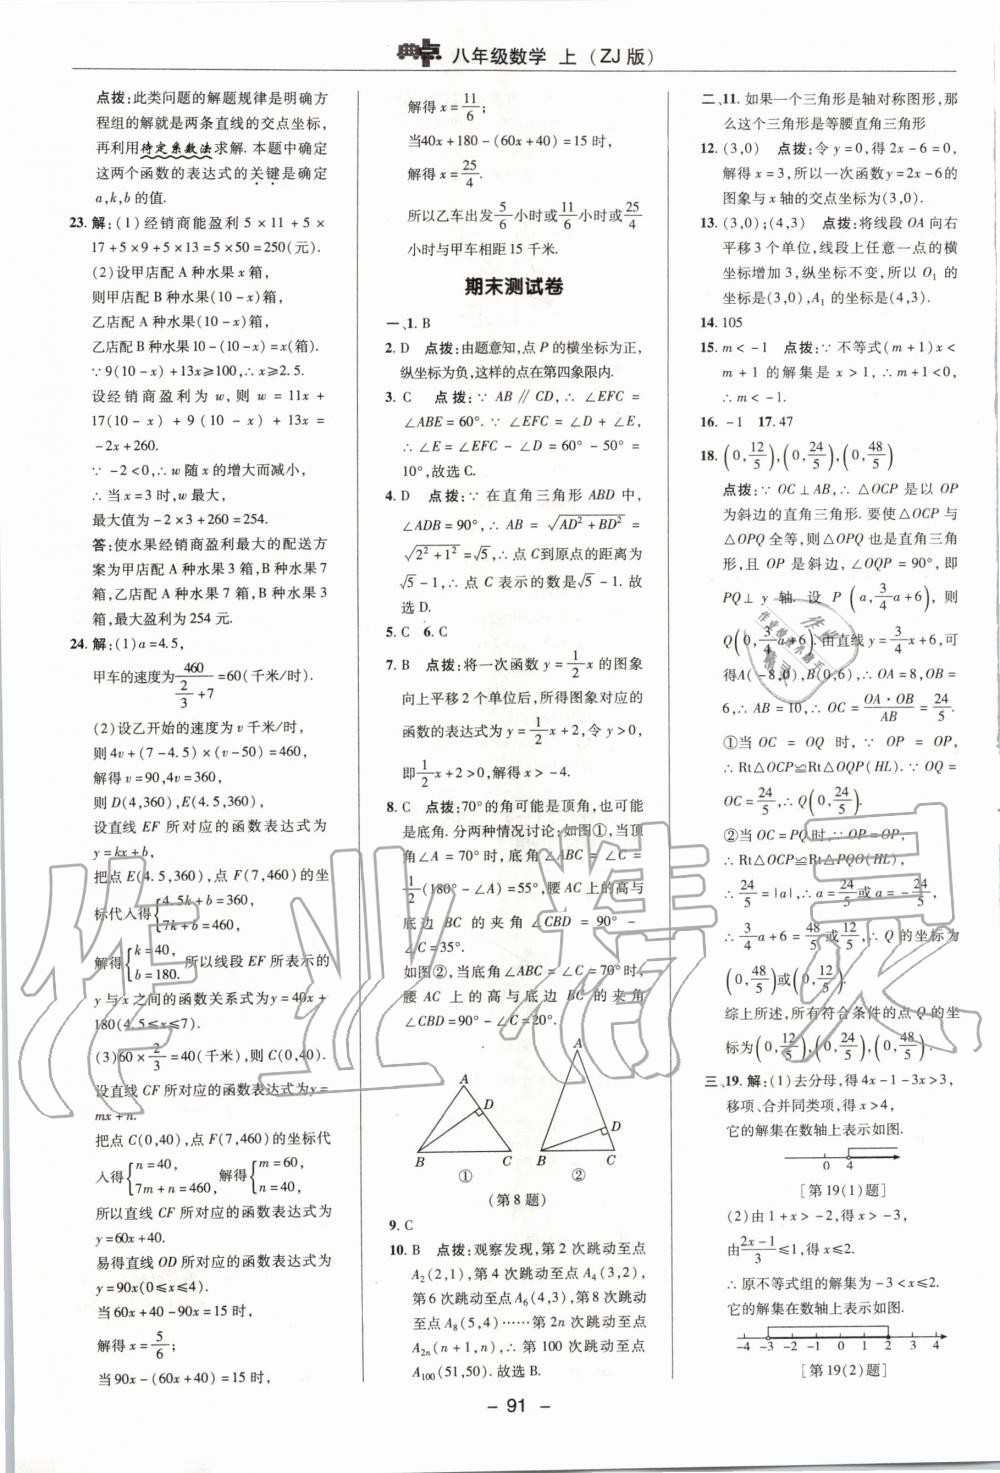 典点 八年级数学 上(ZJ版)
点拨:此类问题的解题规律是明确方
程组的解就是两条直线的交点坐标,
再利用待定系数法求解. 本题中确定
这两个函数的表达式的关键是确定
a,k,b的值.
23. 解:(1)经销商能盈利 5×11+5×
17+5×9+5×13=5×50=250(元).
(2)设甲店配 A 种水果 x 箱,
则甲店配 B 种水果(10-x)箱,
乙店配 A 种水果(10-x)箱,
乙店配 B 种水果10-(10-x)=x(箱).
∵9(10-x)+13x≥100,∴x≥2.5.
设经销商盈利为 w,则 w=11x+
17(10-x)+9(10-x)+13x=
-2x+260.
∵-2<0,∴w 随 x 的增大而减小,
∴当 x=3 时,w 最大,
最大值为-2×3+260=254.
答:使水果经销商盈利最大的配送方
案为甲店配 A 种水果 3 箱,B 种水果 7
箱,乙店配 A 种水果 7 箱,B 种水果
3 箱,最大盈利为 254 元.
24. 解:(1)a=4.5,
甲车的速度为460/(2/3+7)=60(千米/时).
(2)设乙开始的速度为 v 千米/时,
则 4v+(7-4.5)×(v-50)=460,
解得 v=90,4v=360,
则 D(4,360),E(4.5,360),
设直线 EF 所对应的函数表达式为
y=kx+b,
把点 E(4.5,360),点 F(7,460)的坐
标代入得{4.5k+b=360, 7k+b=460,
解得{k=40, b=180. 所以线段 EF 所表示的
y 与 x 之间的函数关系式为 y=40x+
180(4.5≤x≤7).
(3)60×2/3=40(千米),则 C(0,40).
设直线 CF 所对应的函数表达式为 y=
mx+n.
把点 C(0,40),点 F(7,460)的坐标代
入得{n=40, 7m+n=460, 解得{m=60, n=40.
所以直线 CF 所对应的函数表达式为
y=60x+40.
易得直线 OD 所对应的函数表达式为
y=90x(0≤x≤4).
当60x+40-90x=15 时,
解得 x=5/6;
当90x-(60x+40)=15 时,
解得 x=11/6;
当40x+180-(60x+40)=15 时,
解得 x=25/4.
所以乙车出发5/6小时或11/6小时或25/4
小时与甲车相距 15 千米.
期末测试卷
一、1. B
2. D 点拨:由题意知,点 P 的横坐标为正,
纵坐标为负,这样的点在第四象限内.
3. C 点拨:∵AB∥CD,∴∠EFC=
∠ABE=60°.∵∠EFC=∠D+∠E,
∴∠E=∠EFC-∠D=60°-50°=
10°,故选 C.
4. D 点拨:∵在直角三角形 ABD 中,
∠ADB=90°,∴AB=√(AD²+BD²)=
√(2²+1²)=√5,∴点 C到原点的距离为
√5-1,∴点 C 表示的数是√5-1. 故
选 D.
5. C 6. C
7. B 点拨:将一次函数 y=1/2x 的图象
向上平移 2 个单位后,所得图象对应的
函数的表达式为 y=1/2x+2,令 y>0,
即1/2x+2>0,解得 x>-4.
8. C 点拨:70°的角可能是顶角,也可能
是底角. 分两种情况讨论:如图①,当顶
角∠A=70°时,底角∠ABC=∠C=
1/2(180°-∠A)=55°,腰 AC 上的高与
底边 BC 的夹角∠CBD=90°-
∠C=35°.
如图②,当底角∠ABC=∠C=70°时,
腰 AC 上的高与底边 BC 的夹角
∠CBD=90°-∠C=20°.
A
D
B C
①
A
D
B C
②
(第 8 题)
9. C
10. B 点拨:观察发现,第 2 次跳动至点
A₂(2,1),第 4 次跳动至点 A₄(3,2),
第 6 次跳动至点A₆(4,3),第8次跳动
至点A₈(5,4)……第2n 次跳动至点
A₂ₙ(n+1,n),∴第 100 次跳动至点
A₁₀₀(51,50). 故选 B.
二、11. 如果一个三角形是轴对称图形,那
么这个三角形是等腰直角三角形
12. (3,0) 点拨:令 y=0,得 2x-6=0,
解得 x=3,所以一次函数 y=2x-6的
图象与 x 轴的交点坐标为(3,0).
13. (3,0);(4,3) 点拨:将线段 OA 向右
平移 3 个单位,线段上任意一点的横
坐标增加 3,纵坐标不变,所以 O₁ 的
坐标是(3,0),A₁ 的坐标是(4,3).
14. 105
15. m<-1 点拨:∵不等式(m+1)x<
m+1 的解集是 x>1,∴m+1<0,
∴m<-1.
16. -1 17. 47
18. (0,12/5),(0,24/5),(0,48/5)
点拨:∵OC⊥AB,∴△OCP 是以 OP
为斜边的直角三角形. 要使△OCP 与
△OPQ 全等,则△OPQ 也是直角三角
形,且 OP 是斜边,∠OQP=90°,即
PQ⊥y 轴. 设 P(a,3/4a+6),则
Q(0,3/4a+6). 由直线 y=3/4x+6,可
得A(-8,0),B(0,6),∴OA=8,OB=
6,∴AB=10,∴OC=OA·OB/AB=24/5.
①当 OC=OQ 时,∵OP=OP,
∴Rt△OCP≌Rt△OQP(HL).∵OQ=
OC=24/5,∴Q(0,24/5).
②当 OC=PQ 时,∵OP=OP,
∴Rt△OCP≌Rt△PQO(HL),
∴24/5=|a|,∴a=24/5或 a=-24/5,
∴3/4a+6=48/5或12/5,∴Q 的坐标为
(0,48/5)或(0,12/5).
综上所述,所有符合条件的点 Q 的坐
标为(0,12/5),(0,24/5),(0,48/5).
三、19. 解:(1)去分母,得 4x-1-3x>3,
移项、合并同类项,得 x>4,
它的解集在数轴上表示如图.
0 4
[第 19(1)题]
(2)由 1+x>-2,得 x>-3,
由(2x-1)/3≤1,得 x≤2.
∴原不等式组的解集为-3<x≤2.
它的解集在数轴上表示如图.
-4 -3 -2 -1 0 1 2 3 4
[第 19(2)题]
- 91 -
作业精灵